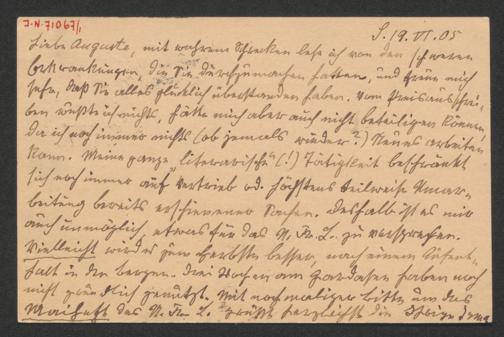 J.N. 71067/1
S. 19. VI. 05
Liebe Auguste, mit wahrem Schrecken lese ich von den schweren
Erkrankungen, die Sie durchzumachen hatten, und freue mich
sehr, daß Sie alles glücklich überstanden haben. Vom Preisausschrei-
ben wußte ich nichts, hätte mich aber auch nicht beteiligen können,
da ich noch immer nichts (ob jemals wieder?) Neues arbeiten
kann. Meine ganze "literarische" (!) Tätigkeit beschränkt
sich noch immer auf Vertrieb od. höchstens teilweise Umar-
beitung bereits erschienener Sachen. Deshalb ist es mir
auch unmöglich, etwas für das N. Fr. L. zu versprechen.
Vielleicht wird es zum Herbste besser, nach einem Aufent-
halt in den Bergen. Drei Wochen am Gardasee haben noch
nicht gründlich genützt. Mit nochmaliger Bitte um das
Maiheft des N. Fr. L. grüßt herzlichst die Ihrige